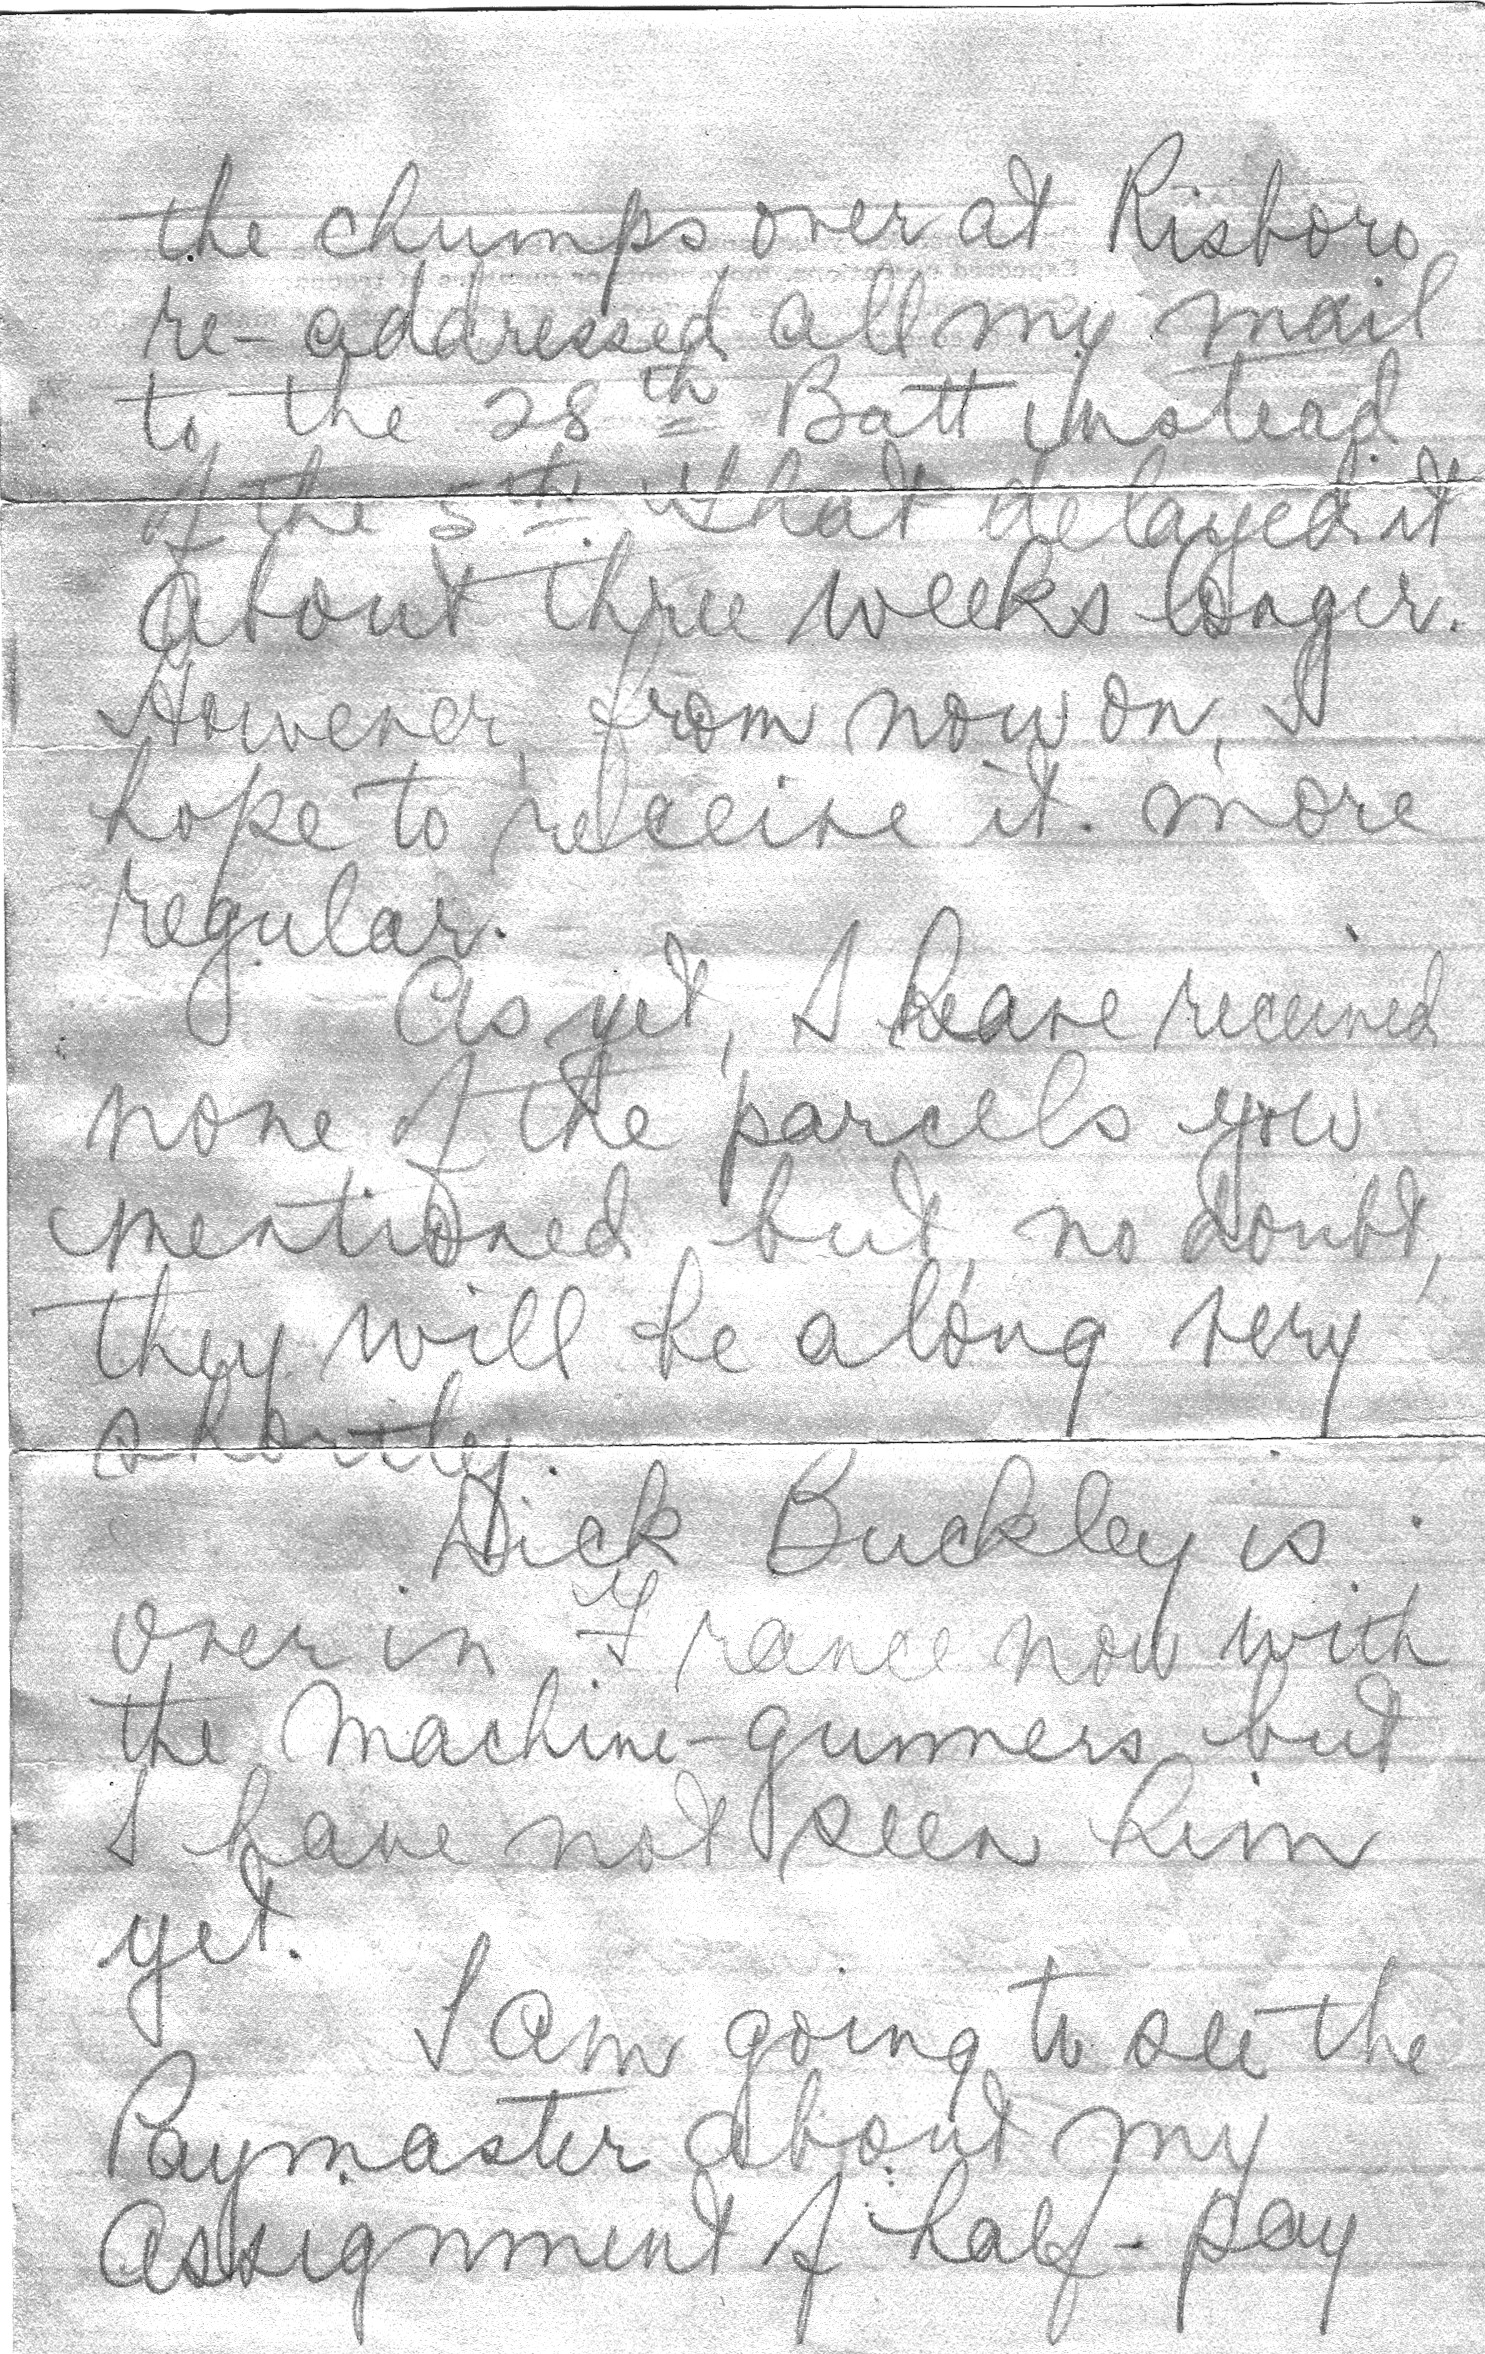 the chumps over at Risboro
re-addressed all my mail
to the 28th Batt instead
of the 5th. That delayed it
about three weeks longer.
However, from now on, I
hope to receive it more
regular.
As yet, I have received
none of the parcels you
mentioned but, no doubt,
they will be along very
shortly.
Dick Buckley is
over in France now with
the Machine-gunners but
I have not seen him
yet.
I am going to see the
Paymaster about my
assignment of half-pay